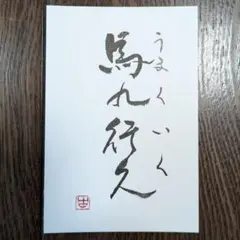 馬九行久
うまくいく